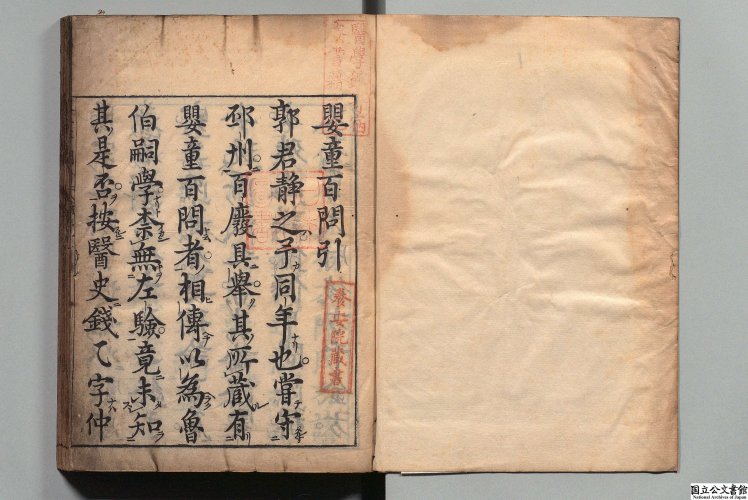 嬰童百問引
郭君静之予同年也嘗守
邳州百廢具舉其所藏有
嬰童百問者相傳以為魯
伯嗣學柰無左驗竟未知
其是否按醫史錢乙字仲
養安院藏書
国立公文書館
National Archives of Japan